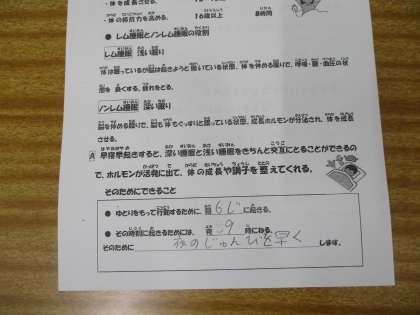 ・体を成長させる。
・体の抵抗力を高める。 16歳以上 8時間
● レム睡眠とノンレム睡眠の役割
レム睡眠 浅い眠り
体は眠っているが脳は起きようと働いている状態。体を休める眠りで、呼吸・脈・血圧の状
態を 良くする。疲れをとる。
ノンレム睡眠 深い眠り
脳を休める眠りで、脳も体もぐっすりと眠っている状態。成長ホルモンが分泌され、体を成長
させる。
A 早寝早起きすると、深い睡眠と浅い睡眠をきちんと交互にとることができるの
で、ホルモンが活発に出て、体の成長や調子を整えてくれる。
そのためにできること
● ゆとりをもって行動するために、朝 6じ に起きる。
● その時刻に起きるためには、 夜 9 時にねる。
そのために 夜のじゅんびを早く します。